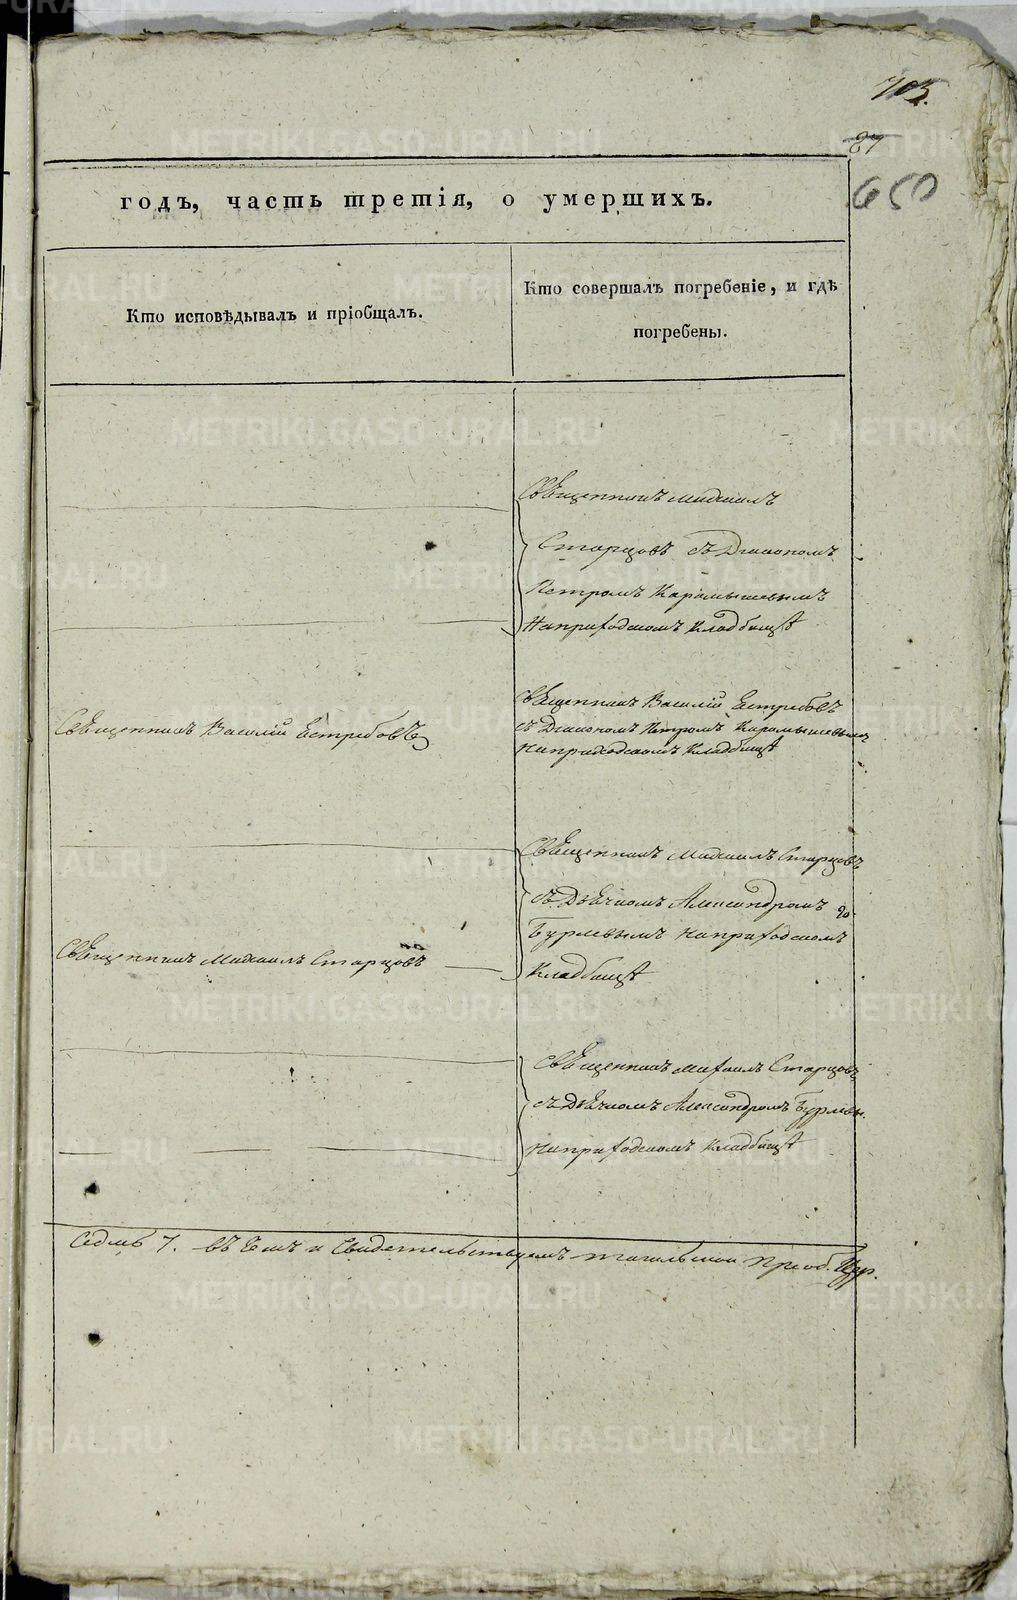 703.
87
650
годъ, часть третія, о умершихъ.
Кто исповѣдывалъ и пріобщалъ.
Кто совершалъ погребеніе, и гдѣ
погребены.
Священникъ Михаилъ
Старцовъ съ Діакономъ
Петромъ Карамышевымъ
На приходскомъ кладбищѣ
Священникъ Василій Ястребовъ
Священникъ Василій Ястребовъ
съ Діакономъ Петромъ Карамышевымъ
на приходскомъ кладбищѣ
Священникъ Михаилъ Старцовъ
Священникъ Михаилъ Старцовъ
съ Дьячкомъ Александромъ
Бурлевымъ на приходскомъ
кладбищѣ
Священникъ Михаилъ Старцовъ
съ Дьячкомъ Александромъ Бурлевы.
на приходскомъ кладбищѣ
Седмь 7. въ чемъ и свидетельствуемъ тагильской Преоб. Цер.
METRIKI.GASO-URAL.RU